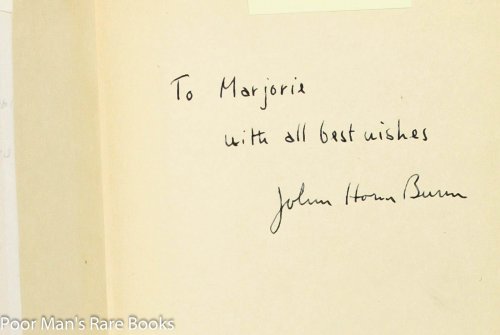 To Marjorie
with all best wishes
John Horne Burns
Poor Man's Rare Books